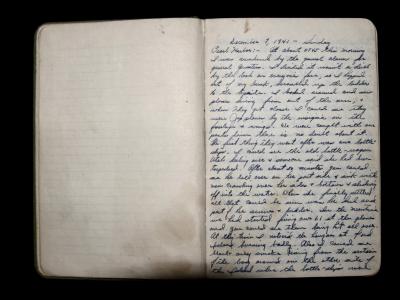 December 7, 1941 - Sunday
Pearl Harbor:- At about 0745 this morning
I was awakened by the general alarm for
general quarters. I realized it wasn't a drill
by the look on everyone's face, so I jumped
out of my bunk, scrambled up the ladder
to the topside. I looked around and saw
planes diving from out of the sun, &
when they got closer I could see they
were Jap planes by the insignia on the
fuselage & wings. We were caught with our
pants down there is no doubt about it.
The first thing they went after was our battle-
ships. I could see the old battle-wagon
Utah being hit & someone said she had been
torpedoed. After about 20 minutes you could
see her heel over on her port side & sink with
men crawling over her sides & bottom & sliding
off into the water. When she finally settled
all that could be seen was her keel and
part of her screws & rudder. In the meantime
we had started firing our at the planes
and you could see them being hit all over.
At this time I noticed the hangar at Ford
Island burning badly. Also I could see
black oily smoke coming from the
of the bay around on the other side of
the Island where the battle-ships were